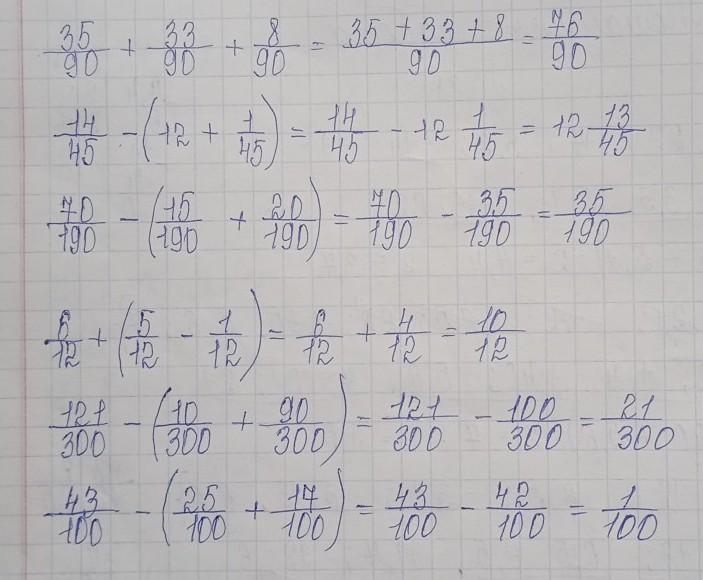 35/90 + 33/90 + 8/90 = 35 + 33 + 8/90 = 76/90
14/45 - (12 + 1/45) = 14/45 - 12 1/45 = 12 13/45
70/190 - (15/190 + 20/190) = 70/190 - 35/190 = 35/190
6/12 + (5/12 - 1/12) = 6/12 + 4/12 = 10/12
121/300 - (10/300 + 90/300) = 121/300 - 100/300 = 21/300
43/100 - (25/100 + 17/100) = 43/100 - 42/100 = 1/100